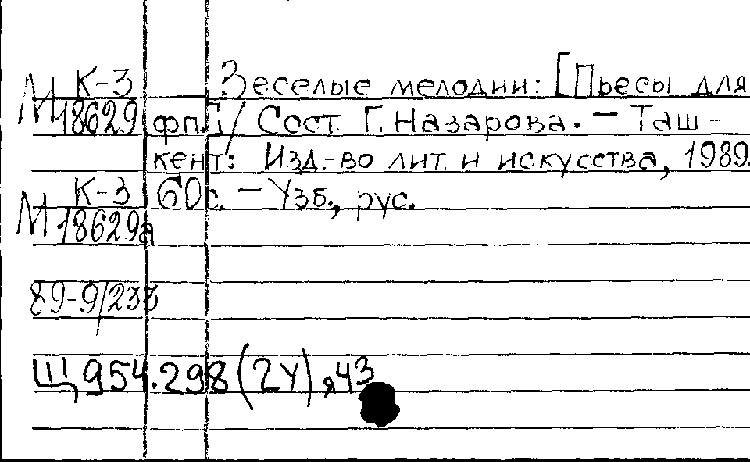 К-3 Веселые мелодии: [Пьесы для
М 18629 фп.]/ Сост. Г. Назарова. — Таш-
кент: Изд-во лит. и искусства, 1989.
К-3 60с. — Узб., рус.
М 18629а
89-9/233
Щ954.298(2У)я43